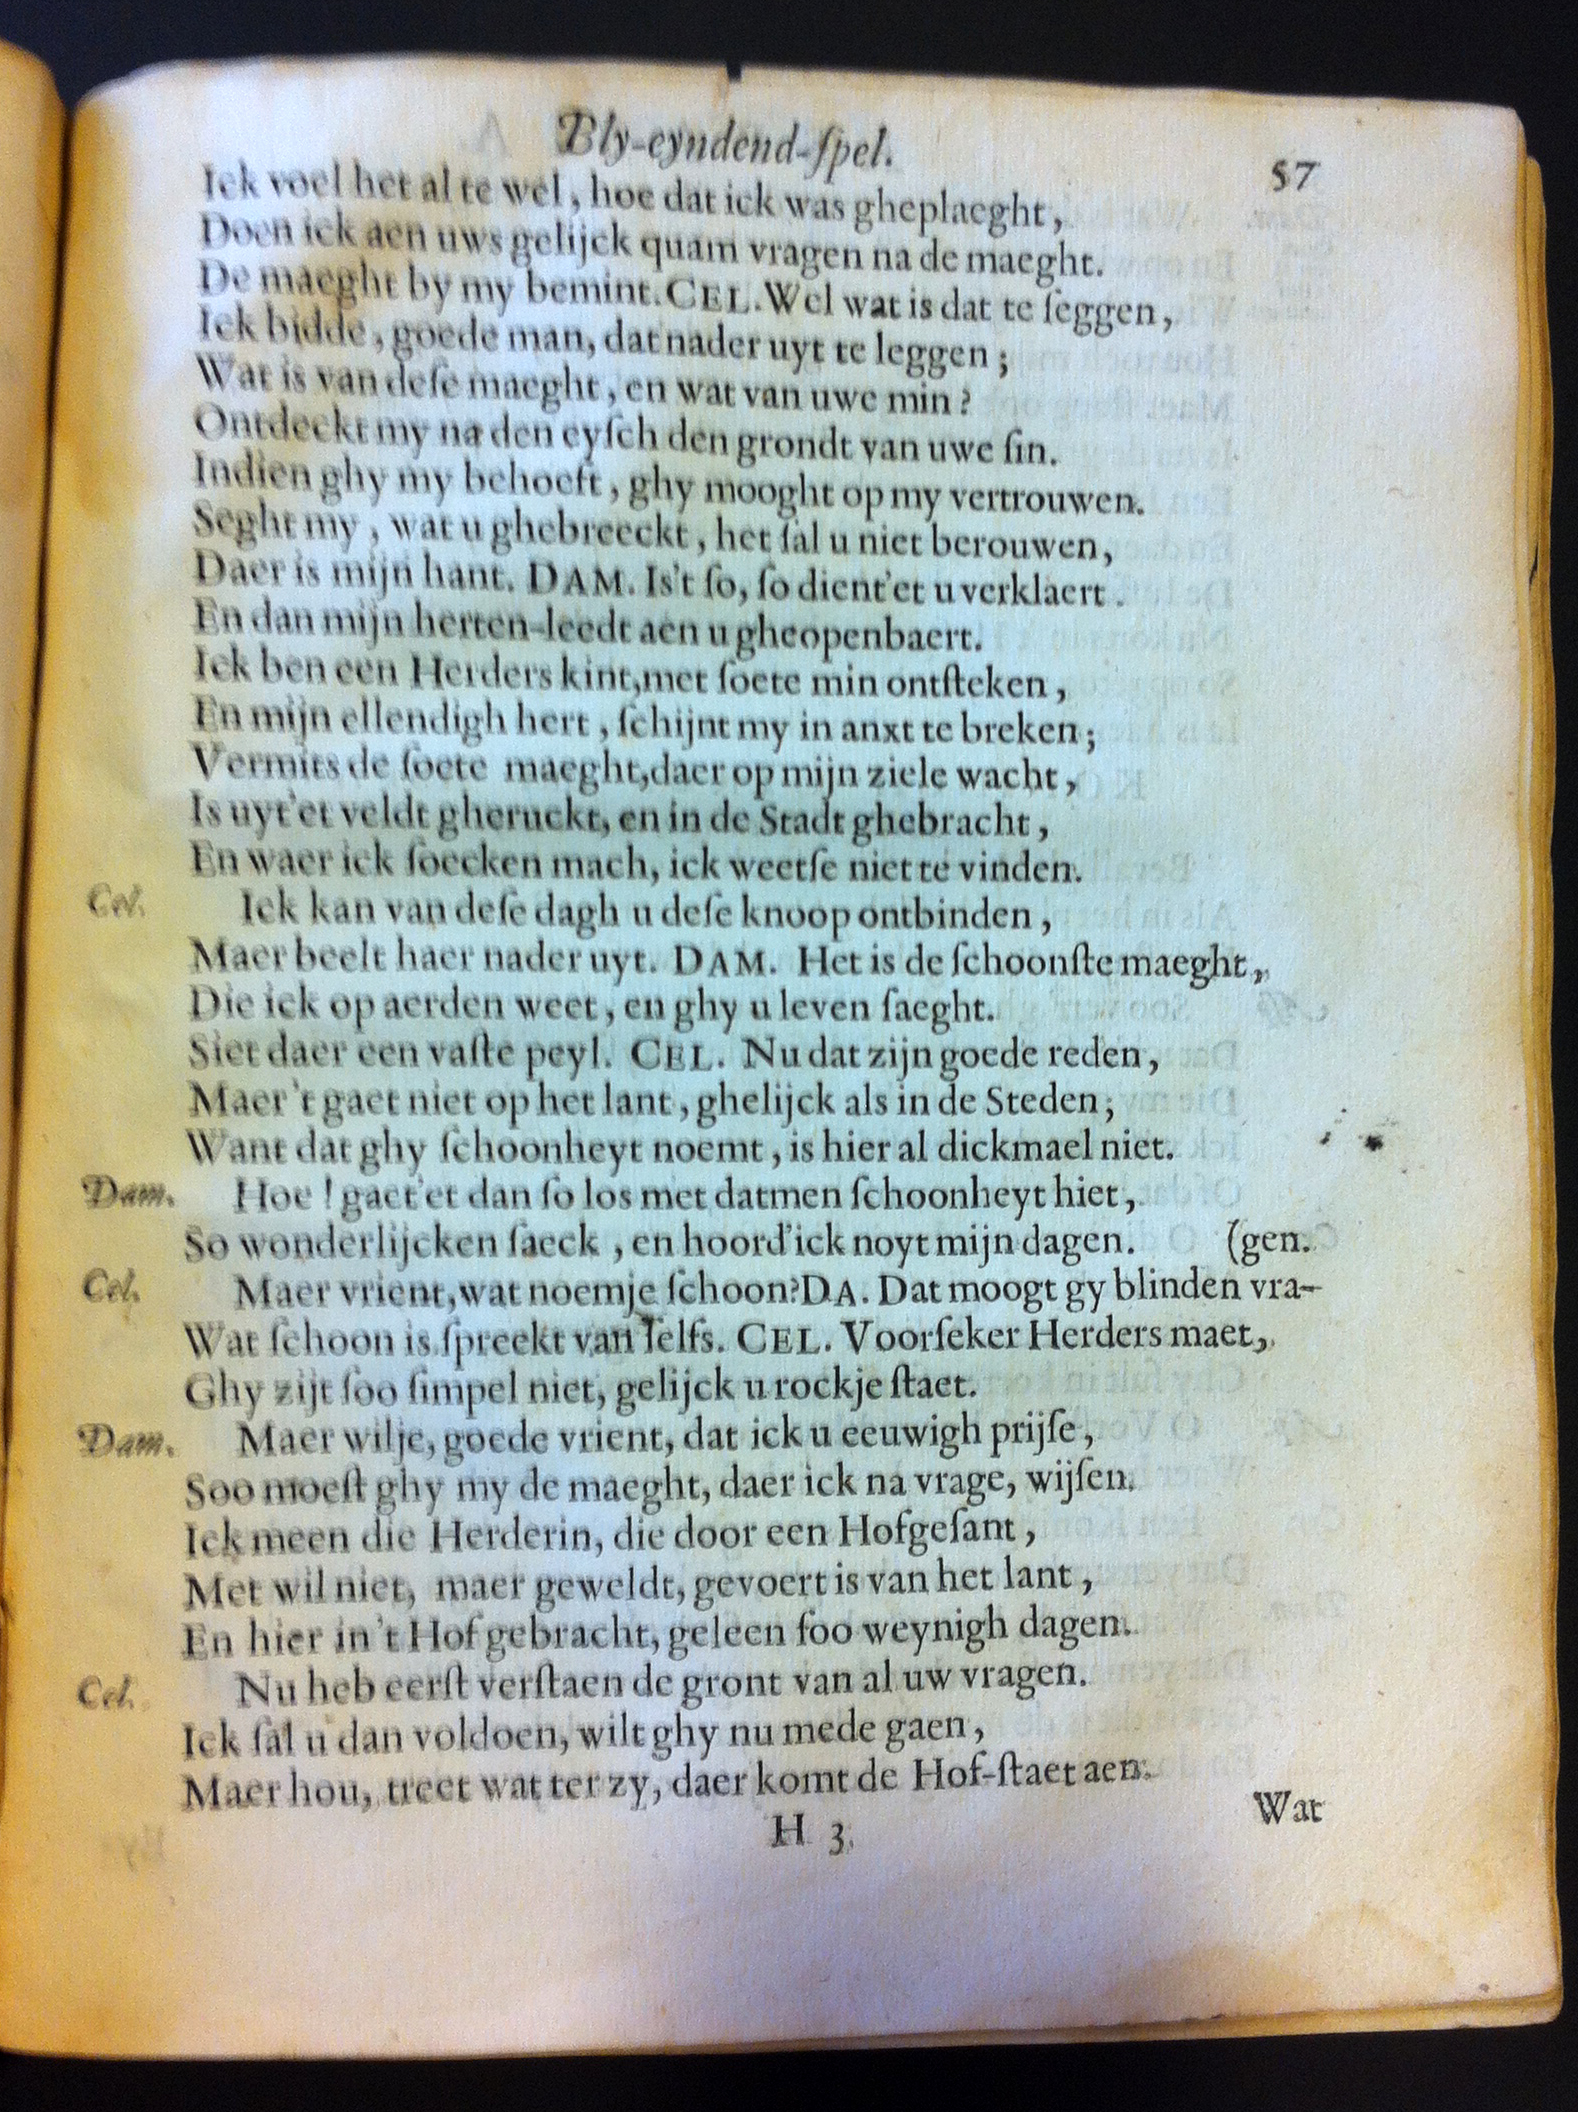 Bly-eyndend-ſpel. 57
Ick voel het al te wel, hoe dat ick was gheplaeght,
Doen ick aen uws gelijck quam vragen na de maeght.
De maeght by my bemint. CEL. Wel wat is dat te ſeggen,
Ick bidde, goede man, dat nader uyt te leggen;
Wat is van deſe maeght, en wat van uwe min?
Ontdeckt my na den eyſch den grondt van uwe ſin.
Indien ghy my behoeft, ghy mooght op my vertrouwen.
Seght my, wat u ghebreeckt, het ſal u niet berouwen,
Daer is mijn hant. DAM. Is't ſo, ſo dient'et u verklaert.
En dan mijn herten-leedt aen u gheopenbaert.
Ick ben een Herders kint, met ſoete min ontſteken,
En mijn ellendigh hert, ſchijnt my in anxt te breken;
Vermits de ſoete maeght, daer op mijn ziele wacht,
Is uyt'et veldt gheruckt, en in de Stadt ghebracht,
En waer ick ſoecken mach, ick weetſe niet te vinden.
Cel. Ick kan van deſe dagh u deſe knoop ontbinden,
Maer beelt haer nader uyt. DAM. Het is de ſchoonſte maeght,
Die ick op aerden weet, en ghy u leven ſaeght.
Siet daer een vaſte peyl. CEL. Nu dat zijn goede reden,
Maer 't gaet niet op het lant, ghelijck als in de Steden;
Want dat ghy ſchoonheyt noemt, is hier al dickmael niet.
Dam. Hoe! gaet'et dan ſo los met datmen ſchoonheyt hiet,
So wonderlijcken ſaeck, en hoord'ick noyt mijn dagen. (gen.
Cel. Maer vrient, wat noemje ſchoon? DA. Dat moogt gy blinden vra-
Wat ſchoon is ſpreekt van ſelfs. CEL. Voorſeker Herders maet,
Ghy zijt ſoo ſimpel niet, gelijck u rockje ſtaet.
Dam. Maer wilje, goede vrient, dat ick u eeuwigh prijſe,
Soo moeſt ghy my de maeght, daer ick na vrage, wijſen.
Ick meen die Herderin, die door een Hofgeſant,
Met wil niet, maer geweldt, gevoert is van het lant,
En hier in 't Hof gebracht, geleen ſoo weynigh dagen.
Cel. Nu heb eerſt verſtaen de gront van al uw vragen.
Ick ſal u dan voldoen, wilt ghy nu mede gaen,
Maer hou, treet wat ter zy, daer komt de Hof-ſtaet aen.
H 3. Wat